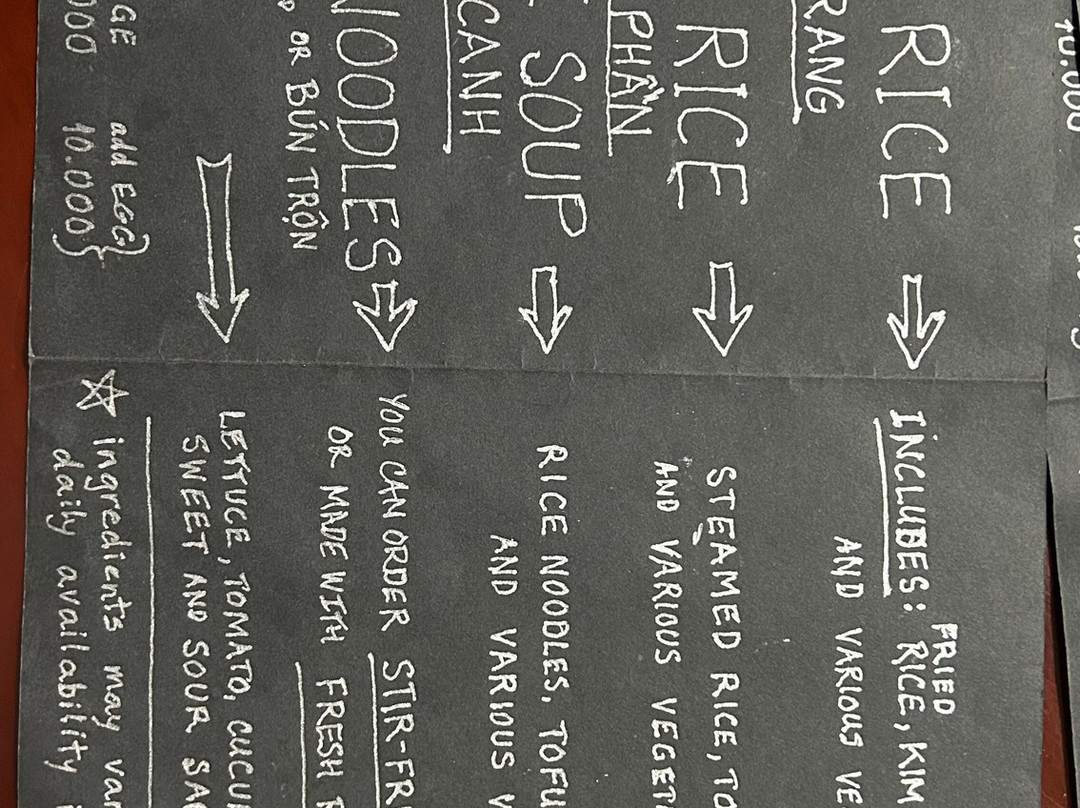 10.000
FRIED
RICE INCLUDES: RICE, KIM
RANG AND VARIOUS VE
RICE STEAMED RICE, TO
PHẦN AND VARIOUS VEGET
SOUP RICE NOODLES, TOFU
CANH AND VARIOUS V
NOODLES YOU CAN ORDER STIR-FR
OR BÚN TRỘN OR MADE WITH FRESH
LETTUCE, TOMATO, CUCU
SWEET AND SOUR SA
GE add EGG} ☆ ingredients may var
000 10.000} daily availability